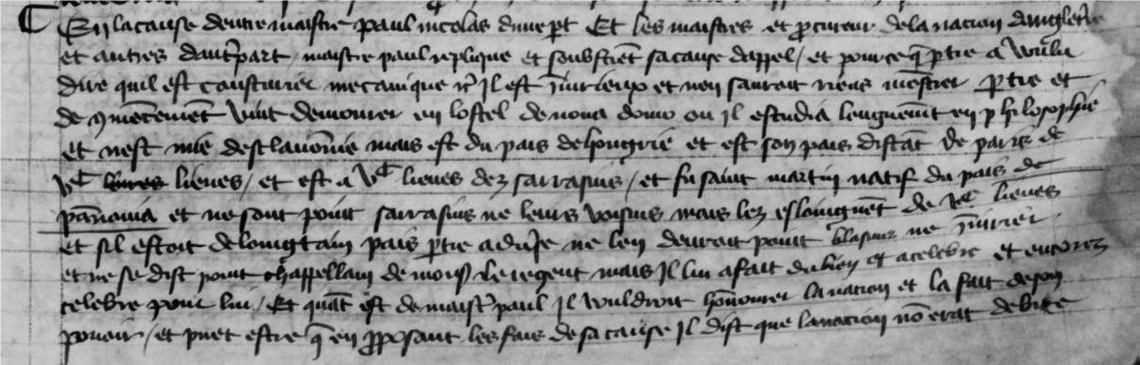 En la cause dentre maistre Paul Nicolas dune pt Et les maistres et pcureur de la nacion dangletre
et autres dautre part maistre paul replique et soubstient sa cause dappel / et pour ce q ptie a voulu
dire quil est cousturier mecanique il est iniurieux et nen sauroit riens monstrer ptie et
de 9mecement vint demourer en lostel de nova domo ou il estudia longuemt en philosophie
et nest mie desclavonie mais est du pais de hongrie et est son pais distat de paris de
vc lieues / et est a vc lieues dez sarrasins / et fu saint martin natif du pais de
panonia et ne sont point sarrasins ne leurs voisins mais lez esloinguet de vc lieues
et sil estoit de loingtain pais ptie adverse ne len devroit point blasmer ne iniurier
et ne se dist point chappellain de mons le regent mais Il lui a fait du bien et a celebre et encores
celebre pour lui / Et quat est de maistre paul Il vouldroit honnorer la nacion et la fait de son
povoir / et puet estre q en pposant les fais de sa cause Il dist que la nacion no erat debite